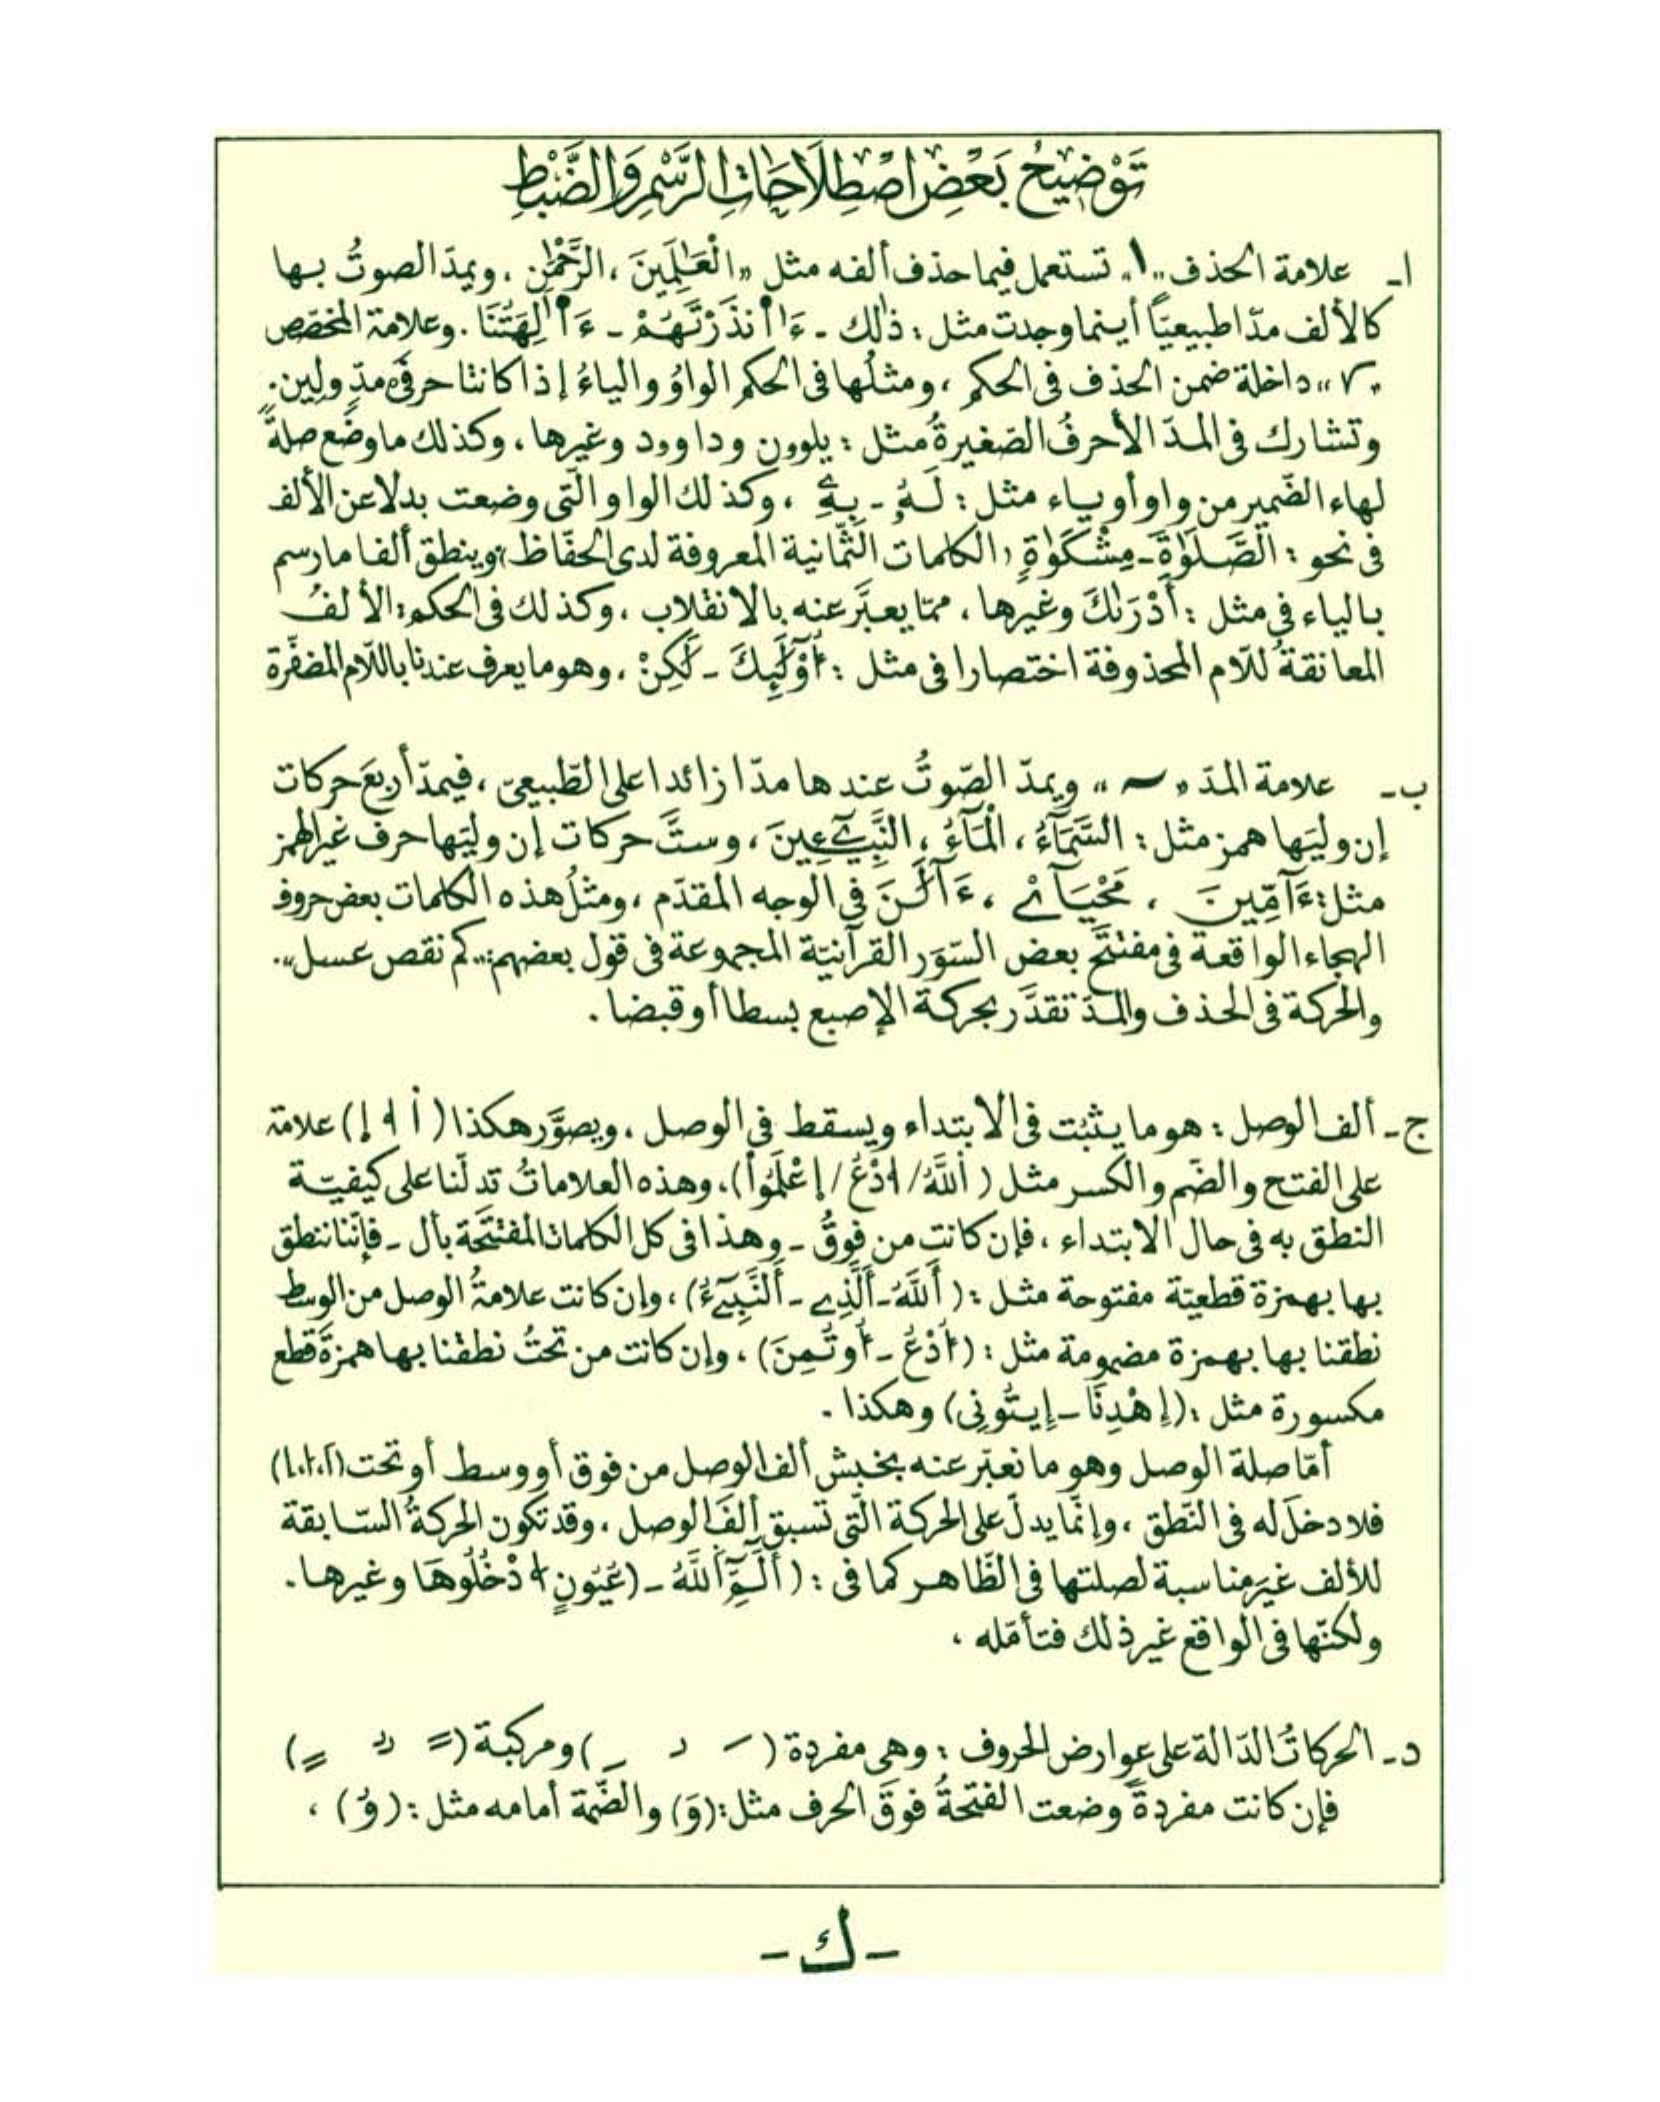 تَوْضِيحُ بَعْضِ اصْطِلَاحَاتِ الرَّسْمِ وَالضَّبْطِ
ا- علامة الحذف "ا" تستعمل فيما حذف ألفه مثل "الْعَٰلَمِينَ، الرَّحْمَٰنِ، ويمدّ الصوتُ بها
كالألف مدّا طبيعيّاً أينما وجدت مثل: ذٰلك - ءَاٰنذَرْتَهُمْ - ءَاٰلِهَتُنَا. وعلامة المخصّص
"٧" داخلة ضمن الحذف فى الحكم، ومثلُها فى الحكم الواوُ والياءُ إذا كانتا حرفَيْ مدّ ولين.
وتشارك فى المدّ الأحرفُ الصّغيرةُ مثل: يلوون وداوود وغيرها، وكذلك ما وضع صلةً
لهاء الضّمير من واو أو ياء مثل: لَهُۥ - بِهِۦ، وكذلك الواو الّتى وضعت بدلا عن الألف
فى نحو: الصَّلَوٰةَ - مِشْكَوٰةٍ (الكلمات الثّمانية المعروفة لدى الحفّاظ) وينطق ألفا ما رسم
بالياء فى مثل: أَدْرَىٰكَ وغيرها، ممّا يعبَّر عنه بالانقلاب، وكذلك فى الحكم: الألفُ
المعانقةُ للّام المحذوفة اختصارا فى مثل: أُوْلَٰٓئِكَ - لَٰكِنْ، وهو ما يعرف عندنا باللّام المضفّرة
ب- علامة المدّ "~" ويمدّ الصّوتُ عندها مدّا زائدا على الطّبيعىّ، فيمدّ أربعَ حركات
إن وليَها همز مثل: السَّمَآءُ، الْمَآءُ، النَّبِيٓـِٕينَ، وستَّ حركات إن وليَها حرف غير الهمز
مثل: ءَآمِّينَ، مَحْيَآےْ، ءَآلَٰنَ فى الوجه المقدّم، ومثلُ هذه الكلمات بعض حروف
الهجاء الواقعة فى مفتتح بعض السّوَر القرآنيّة المجموعة فى قول بعضهم: "كم نقص عسل".
والحركة فى الحذف والمدّ تقدَّر بحركة الإصبع بسطا أو قبضا.
ج- ألف الوصل: هو ما يثبُت فى الابتداء ويسقط فى الوصل، ويصوَّر هكذا ( ا ا ا ) علامة
على الفتح والضّم والكسر مثل (اللَّهُ / ادْعُ / اعْلَمُوا)، وهذه العلاماتُ تدلّنا على كيفيّة
النطق به فى حال الابتداء، فإن كانت من فوقُ - وهذا فى كل الكلمات المفتتَحة بأل - فإنّنا ننطق
بها بهمزة قطعيّة مفتوحة مثل: (أَللَّهُ - أَلَّذِے - أَلنَّبِيٓءُ)، وإن كانت علامةُ الوصل من الوسط
نطقنا بها بهمزة مضمومة مثل: (أُدْعُ - أُوتُمِنَ)، وإن كانت من تحتُ نطقنا بها همزةَ قطع
مكسورة مثل: (إِهْدِنَا - إِيتُونِى) وهكذا.
أمّا صلة الوصل وهو ما نعبّر عنه بخبش ألف الوصل من فوق أو وسط أو تحت (ا،ا،ا)
فلا دخل له فى النّطق، وإنّما يدلّ على الحركة الّتى تسبق ألفَ الوصل، وقد تكون الحركةُ السّابقة
للألف غيرَ مناسبة لصلتها فى الظّاهر كما فى: (أَلَٓمِّٓ اَللَّهُ - (عُيُونٍ ادْخُلُوهَا وغيرها.
ولكنّها فى الواقع غير ذلك فتأمّله،
د- الحركاتُ الدّالة على عوارض الحروف: وهى مفردة ( َ ُ ِ ) ومركبة ( ً ٌ ٍ )
فإن كانت مفردةً وضعت الفتحةُ فوقَ الحرف مثل: (وَ) والضّمة أمامه مثل: (وُ)،
- ك -